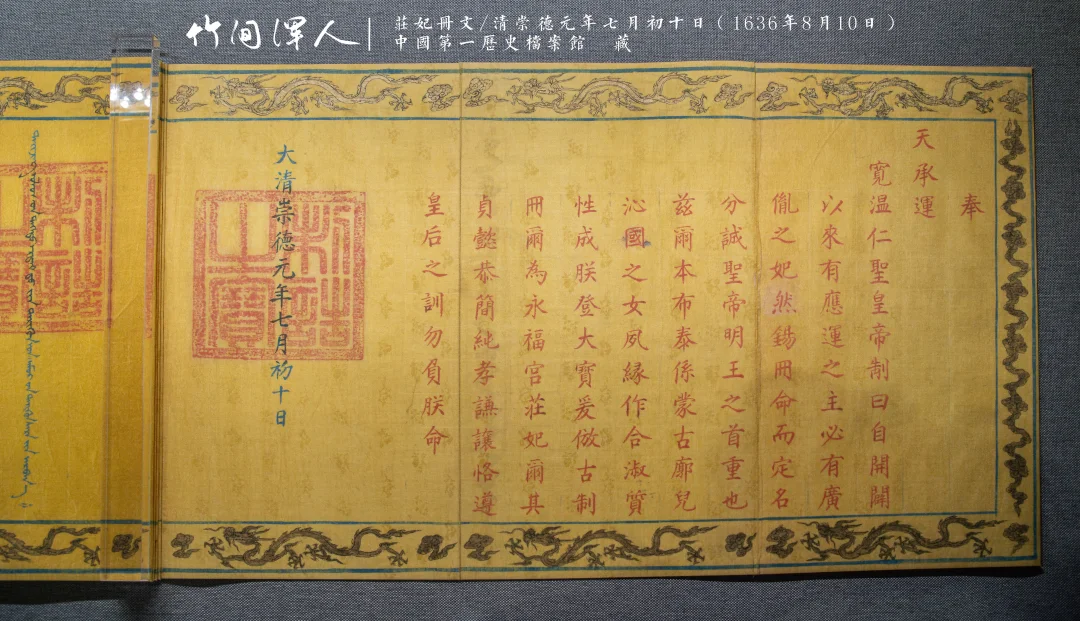 竹间澤人
莊妃冊文/清崇德元年七月初十日（1636年8月10日）
中國第一歷史檔案館 藏
奉
天承運
寬温仁聖皇帝制曰自開闢
以來有應運之主必有廣
胤之妃然錫冊命而定名
分誠聖帝明王之首重也
茲爾本布泰係蒙古廓兒
沁國之女夙緣作合淑質
性成朕登大寶爰倣古制
冊爾為永福宮莊妃爾其
貞懿恭簡純孝謙讓恪遵
皇后之訓勿負朕命
大清崇德元年七月初十日
制誥之寶